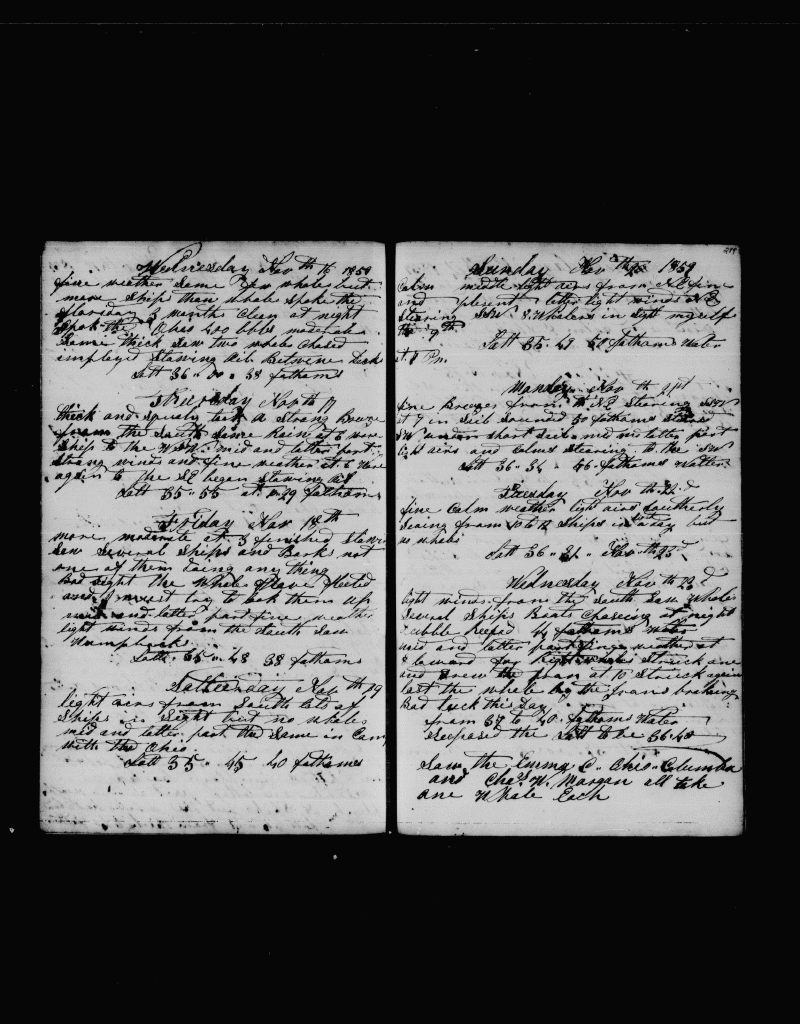 Wednesday Nov th 16 1859
fine weather some few whales but
more ships than whales spoke the
3 months Clean at night
spok the Ohio 400 bbls moderate
some thick saw two whales chased
employed stowing oil Betwene Decks
Latt 36 " 00 " 38 fathoms
Thursday Nov th 17
thick and tack a strong Breeze
from the South some Rain at 6 wore
ship to the WSW mid and latter part
strong winds and fine weather at 6 wore
again to the SE began stowing oil
Latt 35 " 55 at 29 fathoms
Friday Nov 18th
more moderate at 3 finished stowing
saw several ships and Barks not
one of them doing any thing
Bad sight the whales
and must try to ask them up
mid and latter part fine weather
light winds from the South saw
Humpbacks
Latt. 35 " 48 38 fathoms
Satterday Nov th 19
light airs from South lots of
ships in sight but no whales
mid and latter part the same in Com
with the Ohio
Latt 35 " 45 40 fathoms
214
Sunday Nov th 20 1859
Calm middle light airs from NE fine
and plesent latter light winds NE
Stearing SSW 8 whalers in sight myself
the 9th
Latt 35 " 49 50 fathoms Water
at 8 Pm
Monday Nov th 21st
fine Breezes from the NE Stearing SSW
at 7 in Sail sounded 50 fathoms
SW under short sail mid and latter part
light airs and Calms stearing to the SW
Latt 36 " 34 " 56 fathoms Watter
Tuesday Nov th 22d
fine Calm weather light airs Southerly
Seeing from 10 to 12 ships in a day but
no whales
Latt 36 " 31 " Nov th 23d
Wednesday Nov th 23d
light winds from the South saw whales
several ships Boats Chaseing at night
44 fathoms Water
mid and latter part fine weather at
8 lowerd for Right whales struck one
and drew the Iron at 10 struck again
lost the whale by the Irons breaking
Bad luck this Day
from 37 to 40 " fathoms Water
supposed the Latt to be 36 " 40
Saw the Emma C. Ohio Columbia
and Chas W. Morgan all take
one Whale Each